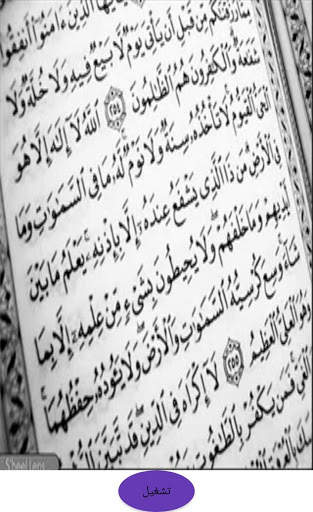 يها الذين ءامنوا أنفقوا
مما رزقنكم من قبل أن يأتي يوم لا بيع فيه ولا خلة ولا
شفعة والكفرون هم الظلمون ٢٥٤ الله لا إله إلا هو
الحي القيوم لا تأخذه سنة ولا نوم له ما في السموت وما
في الأرض من ذا الذي يشفع عنده إلا بإذنه يعلم ما بين
أيديهم وما خلفهم ولا يحيطون بشيء من علمه إلا بما
شاء وسع كرسيه السموت والأرض ولا يئوده حفظهما
وهو العلي العظيم ٢٥٥ لا إكراه في الدين قد تبين الر
الغي فمن يكفر بالطغوت
تشغيل